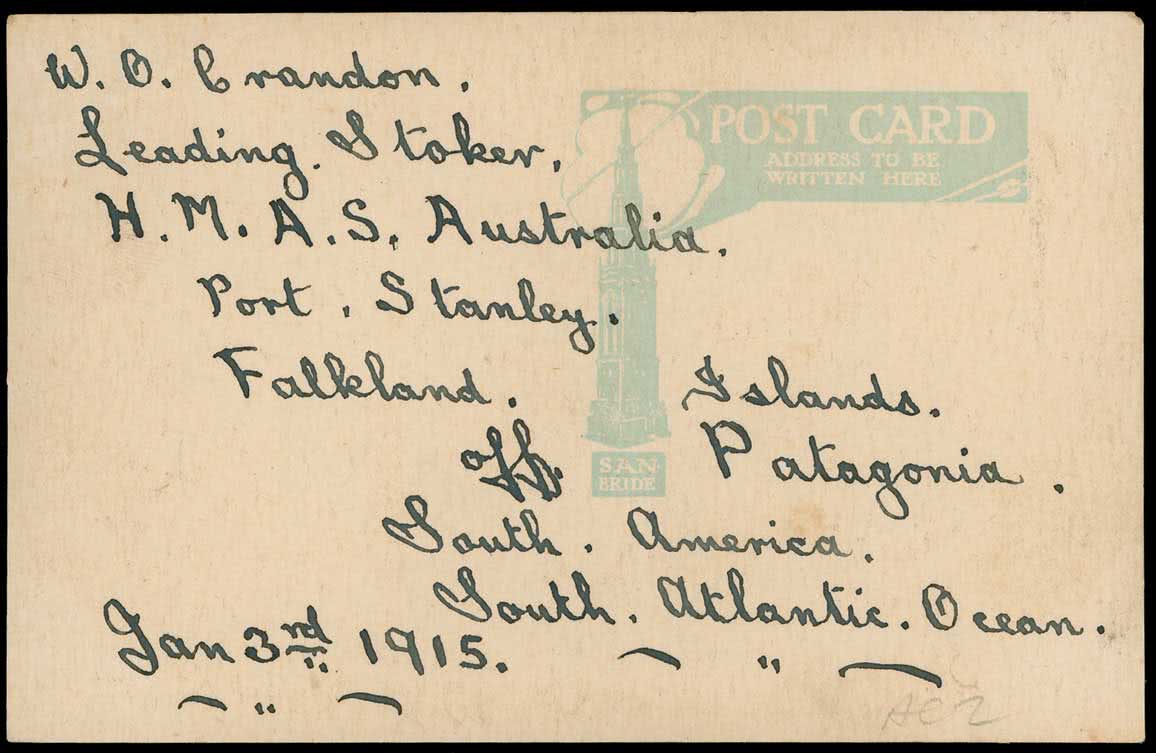 W. O. Crandon.
POST CARD
ADDRESS TO BE
WRITTEN HERE
Leading. Stoker.
H. M. A. S. Australia.
Port. Stanley.
Falkland. Islands.
off. Patagonia.
SAN
BRIDE
South. America.
South. Atlantic. Ocean.
Jan 3rd 1915.